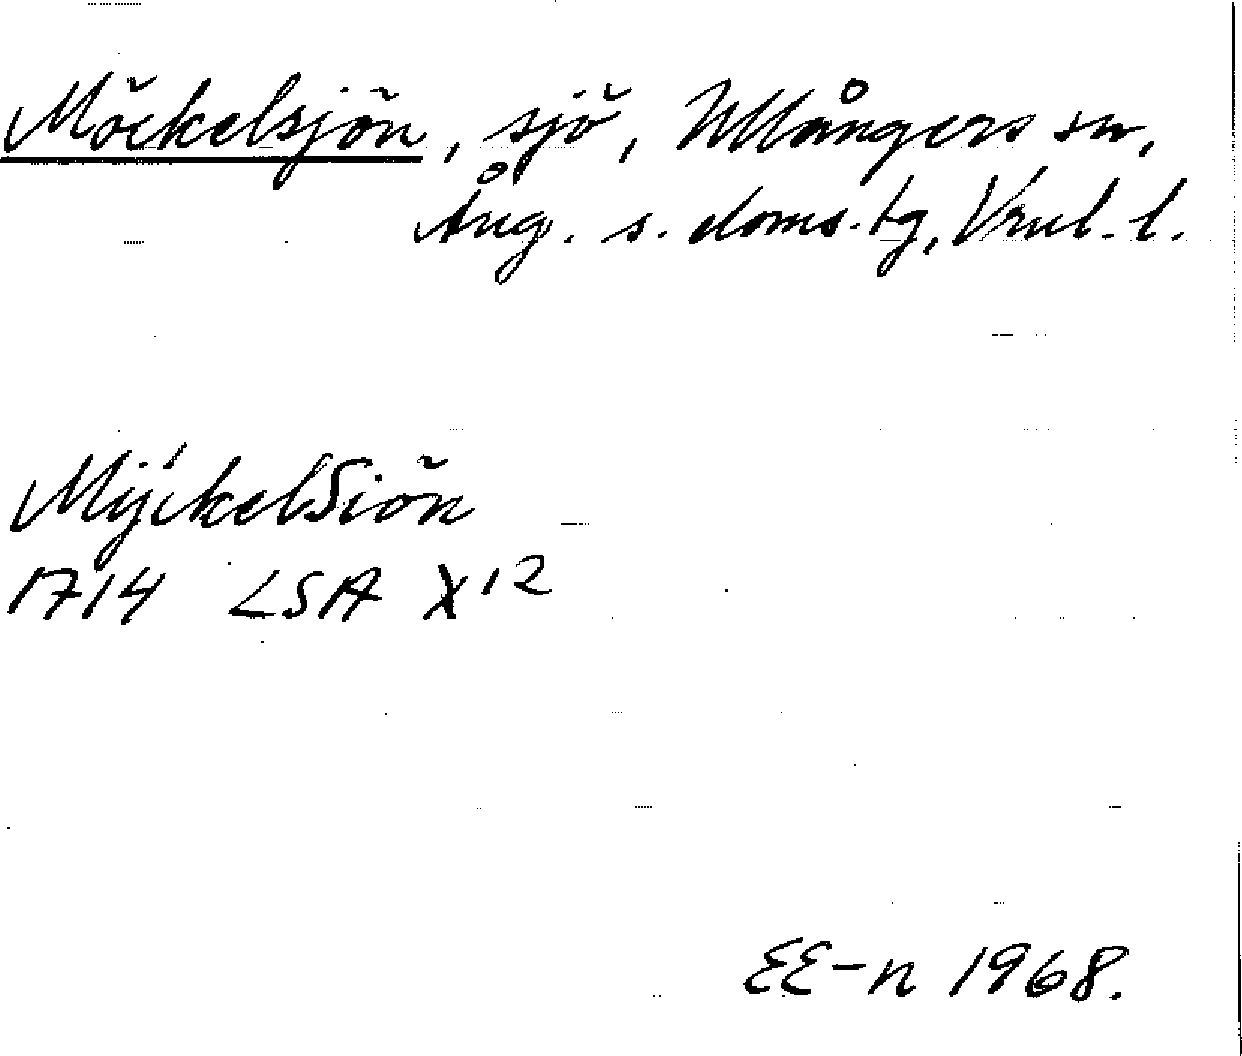 Möckelsjön, sjö, Ullångers sn,
Ång. s. doms.tg, Vnl. l.
MyckelSiön
1714 LSA X12
EE-n 1968.